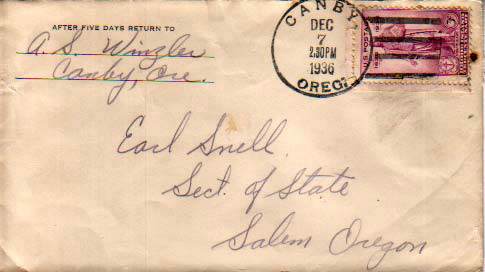 AFTER FIVE DAYS RETURN TO
A. S. Winzler
Canby, Ore.
CANBY
DEC
7
2:30PM
1936
OREG.
U.S. POSTAGE
3¢
Earl Snell
Sect. of State
Salem Oregon